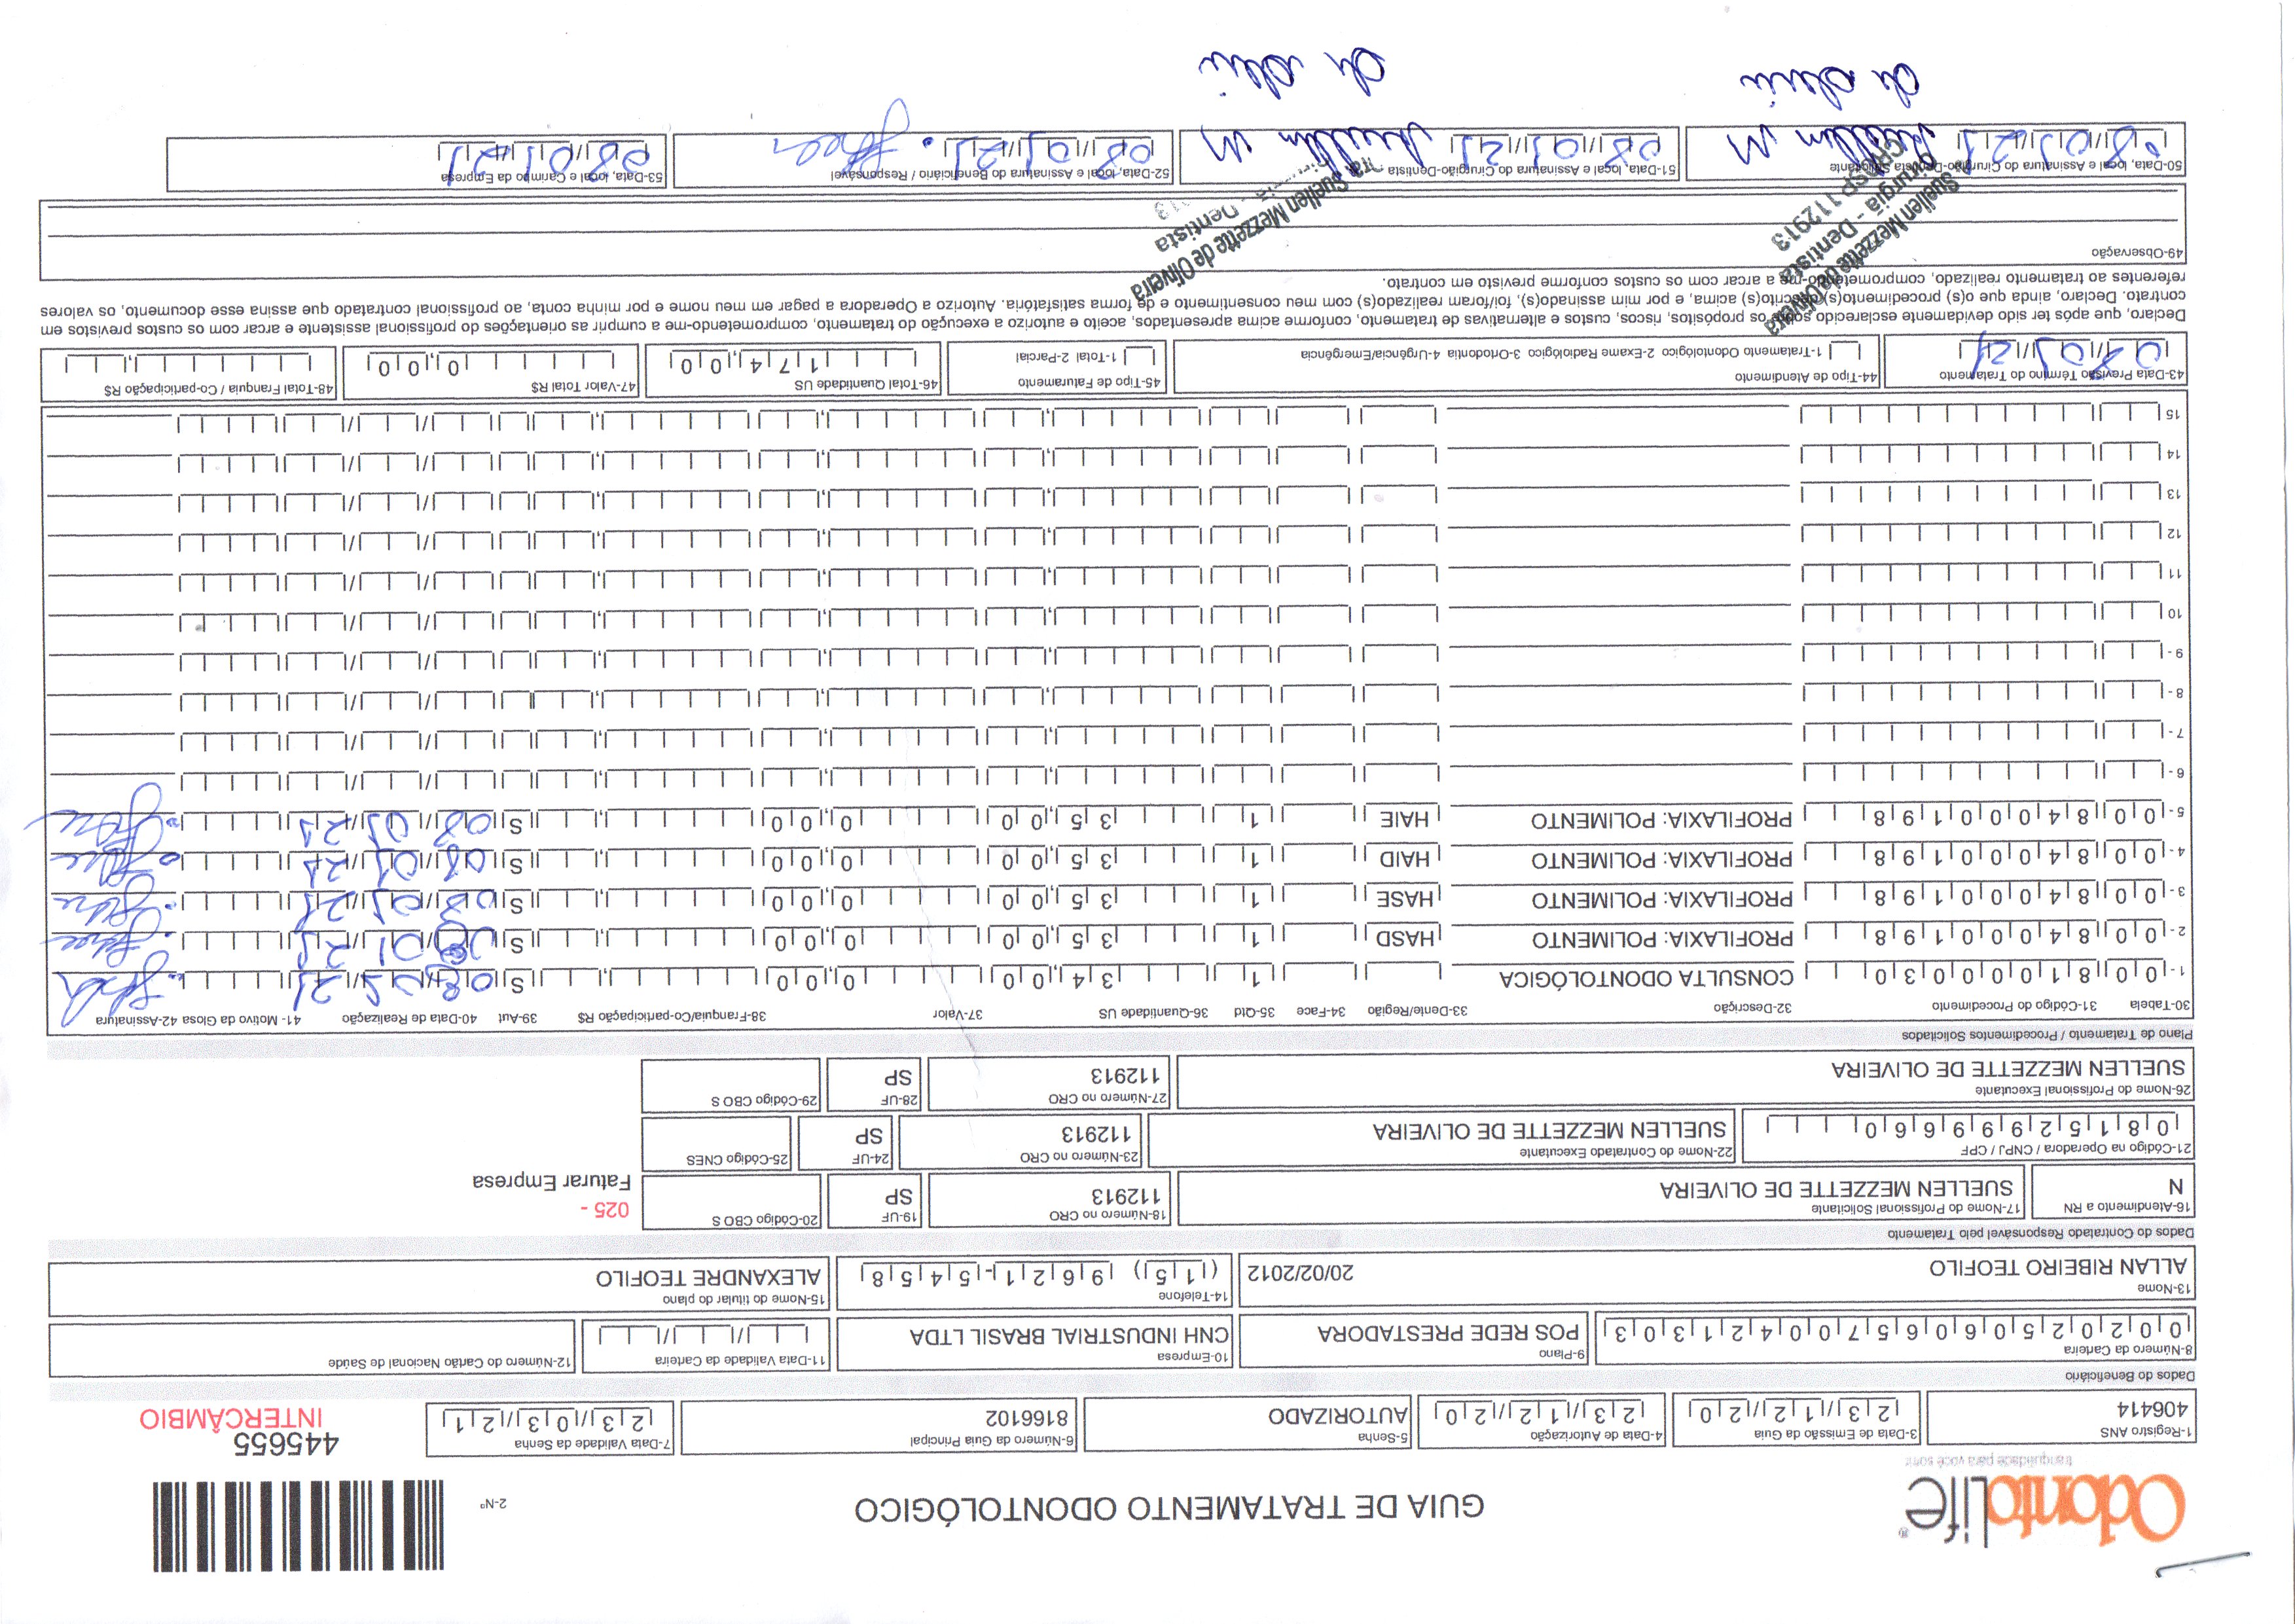 OdontoLife®
tranquilidade para você sorrir
GUIA DE TRATAMENTO ODONTOLÓGICO
2-Nº
445655
INTERCÂMBIO
1-Registro ANS 406414
3-Data de Emissão da Guia 23/12/20
4-Data de Autorização 23/12/20
5-Senha AUTORIZADO
6-Número da Guia Principal 8166102
7-Data Validade da Senha 23/03/21
Dados do Beneficiário
8-Número da Carteira 00202506065700421303
9-Plano POS REDE PRESTADORA
10-Empresa CNH INDUSTRIAL BRASIL LTDA
11-Data Validade da Carteira
12-Número do Cartão Nacional de Saúde
13-Nome ALLAN RIBEIRO TEOFILO 20/02/2012
14-Telefone (15) 99621-5458
15-Nome do titular do plano ALEXANDRE TEOFILO
Dados do Contratado Responsável pelo Tratamento
16-Atendimento a RN N
17-Nome do Profissional Solicitante SUELLEN MEZZETTE DE OLIVEIRA
18-Número no CRO 112913
19-UF SP
20-Código CBO S
025 -
Faturar Empresa
21-Código na Operadora / CNPJ / CPF 08152999660
22-Nome do Contratado Executante SUELLEN MEZZETTE DE OLIVEIRA
23-Número no CRO 112913
24-UF SP
25-Código CNES
26-Nome do Profissional Executante SUELLEN MEZZETTE DE OLIVEIRA
27-Número no CRO 112913
28-UF SP
29-Código CBO S
Plano de Tratamento / Procedimentos Solicitados
30-Tabela 31-Código do Procedimento 32-Descrição 33-Dente/Região 34-Face 35-Qtd 36-Quantidade US 37-Valor 38-Franquia/Co-participação R$ 39-Aut 40-Data de Realização 41- Motivo da Glosa 42-Assinatura
1- 00 81000030 CONSULTA ODONTOLÓGICA 1 34,00 0,00 S 08/01/21
2- 00 84000198 PROFILAXIA: POLIMENTO HASD 1 35,00 0,00 S 08/01/21
3- 00 84000198 PROFILAXIA: POLIMENTO HASE 1 35,00 0,00 S 08/01/21
4- 00 84000198 PROFILAXIA: POLIMENTO HAID 1 35,00 0,00 S 08/01/21
5- 00 84000198 PROFILAXIA: POLIMENTO HAIE 1 35,00 0,00 S 08/01/21
6-
7-
8-
9-
10
11
12
13
14
15
43-Data Previsão Término do Tratamento 08/01/21
44-Tipo de Atendimento 1-Tratamento Odontológico 2-Exame Radiológico 3-Ortodontia 4-Urgência/Emergência
45-Tipo de Faturamento 1-Total 2-Parcial
46-Total Quantidade US 174,00
47-Valor Total R$ 0,00
48-Total Franquia / Co-participação R$
Declaro, que após ter sido devidamente esclarecido sobre os propósitos, riscos, custos e alternativas de tratamento, conforme acima apresentados, aceito e autorizo a execução do tratamento, comprometendo-me a cumprir as orientações do profissional assistente e arcar com os custos previstos em
contrato. Declaro, ainda que o(s) procedimento(s) descrito(s) acima, e por mim assinado(s), foi/foram realizado(s) com meu consentimento e de forma satisfatória. Autorizo a Operadora a pagar em meu nome e por minha conta, ao profissional contratado que assina esse documento, os valores
referentes ao tratamento realizado, comprometendo-me a arcar com os custos conforme previsto em contrato.
49-Observação
Suellen Mezzette de Oliveira
Cirurgiã - Dentista
CROSP 112913
Dra. Suellen Mezzette de Oliveira
- Dentista
50-Data, local e Assinatura do Cirurgião-Dentista Solicitante 08/01/21
51-Data, local e Assinatura do Cirurgião-Dentista 08/01/21
52-Data, local e Assinatura do Beneficiário / Responsável 08/01/21
53-Data, local e Carimbo da Empresa 08/01/21